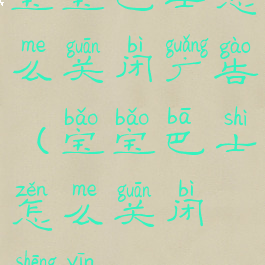 宝宝巴士怎
me guān bì guǎng gào
么关闭广告
bǎo bǎo bā shì
（宝宝巴士
zěn me guān bì
怎么关闭
shēng yīn